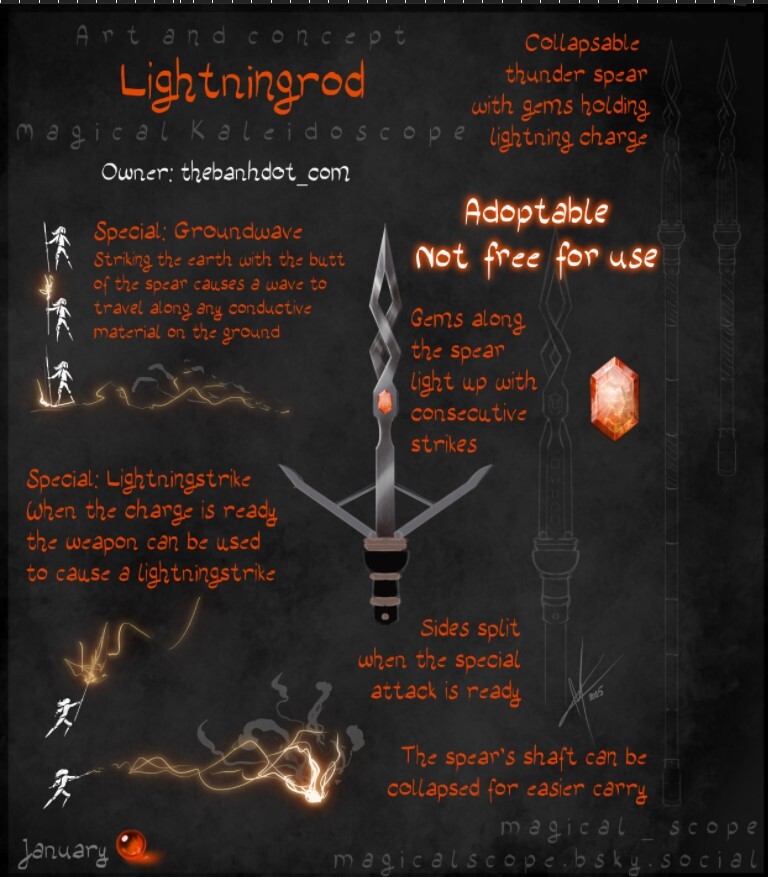 Art and concept
Lightningrod
magical Kaleidoscope
Owner: thebanhdot_com
Collapsable
thunder spear
with gems holding
lightning charge
Adoptable
Not free for use
Special: Groundwave
Striking the earth with the butt
of the spear causes a wave to
travel along any conductive
material on the ground
Gems along
the spear
light up with
consecutive
strikes
Special: Lightningstrike
When the charge is ready
the weapon can be used
to cause a lightningstrike
Sides split
when the special
attack is ready
2025
The spear's shaft can be
collapsed for easier carry
magical_scope
January
magicalscope.bsky.social